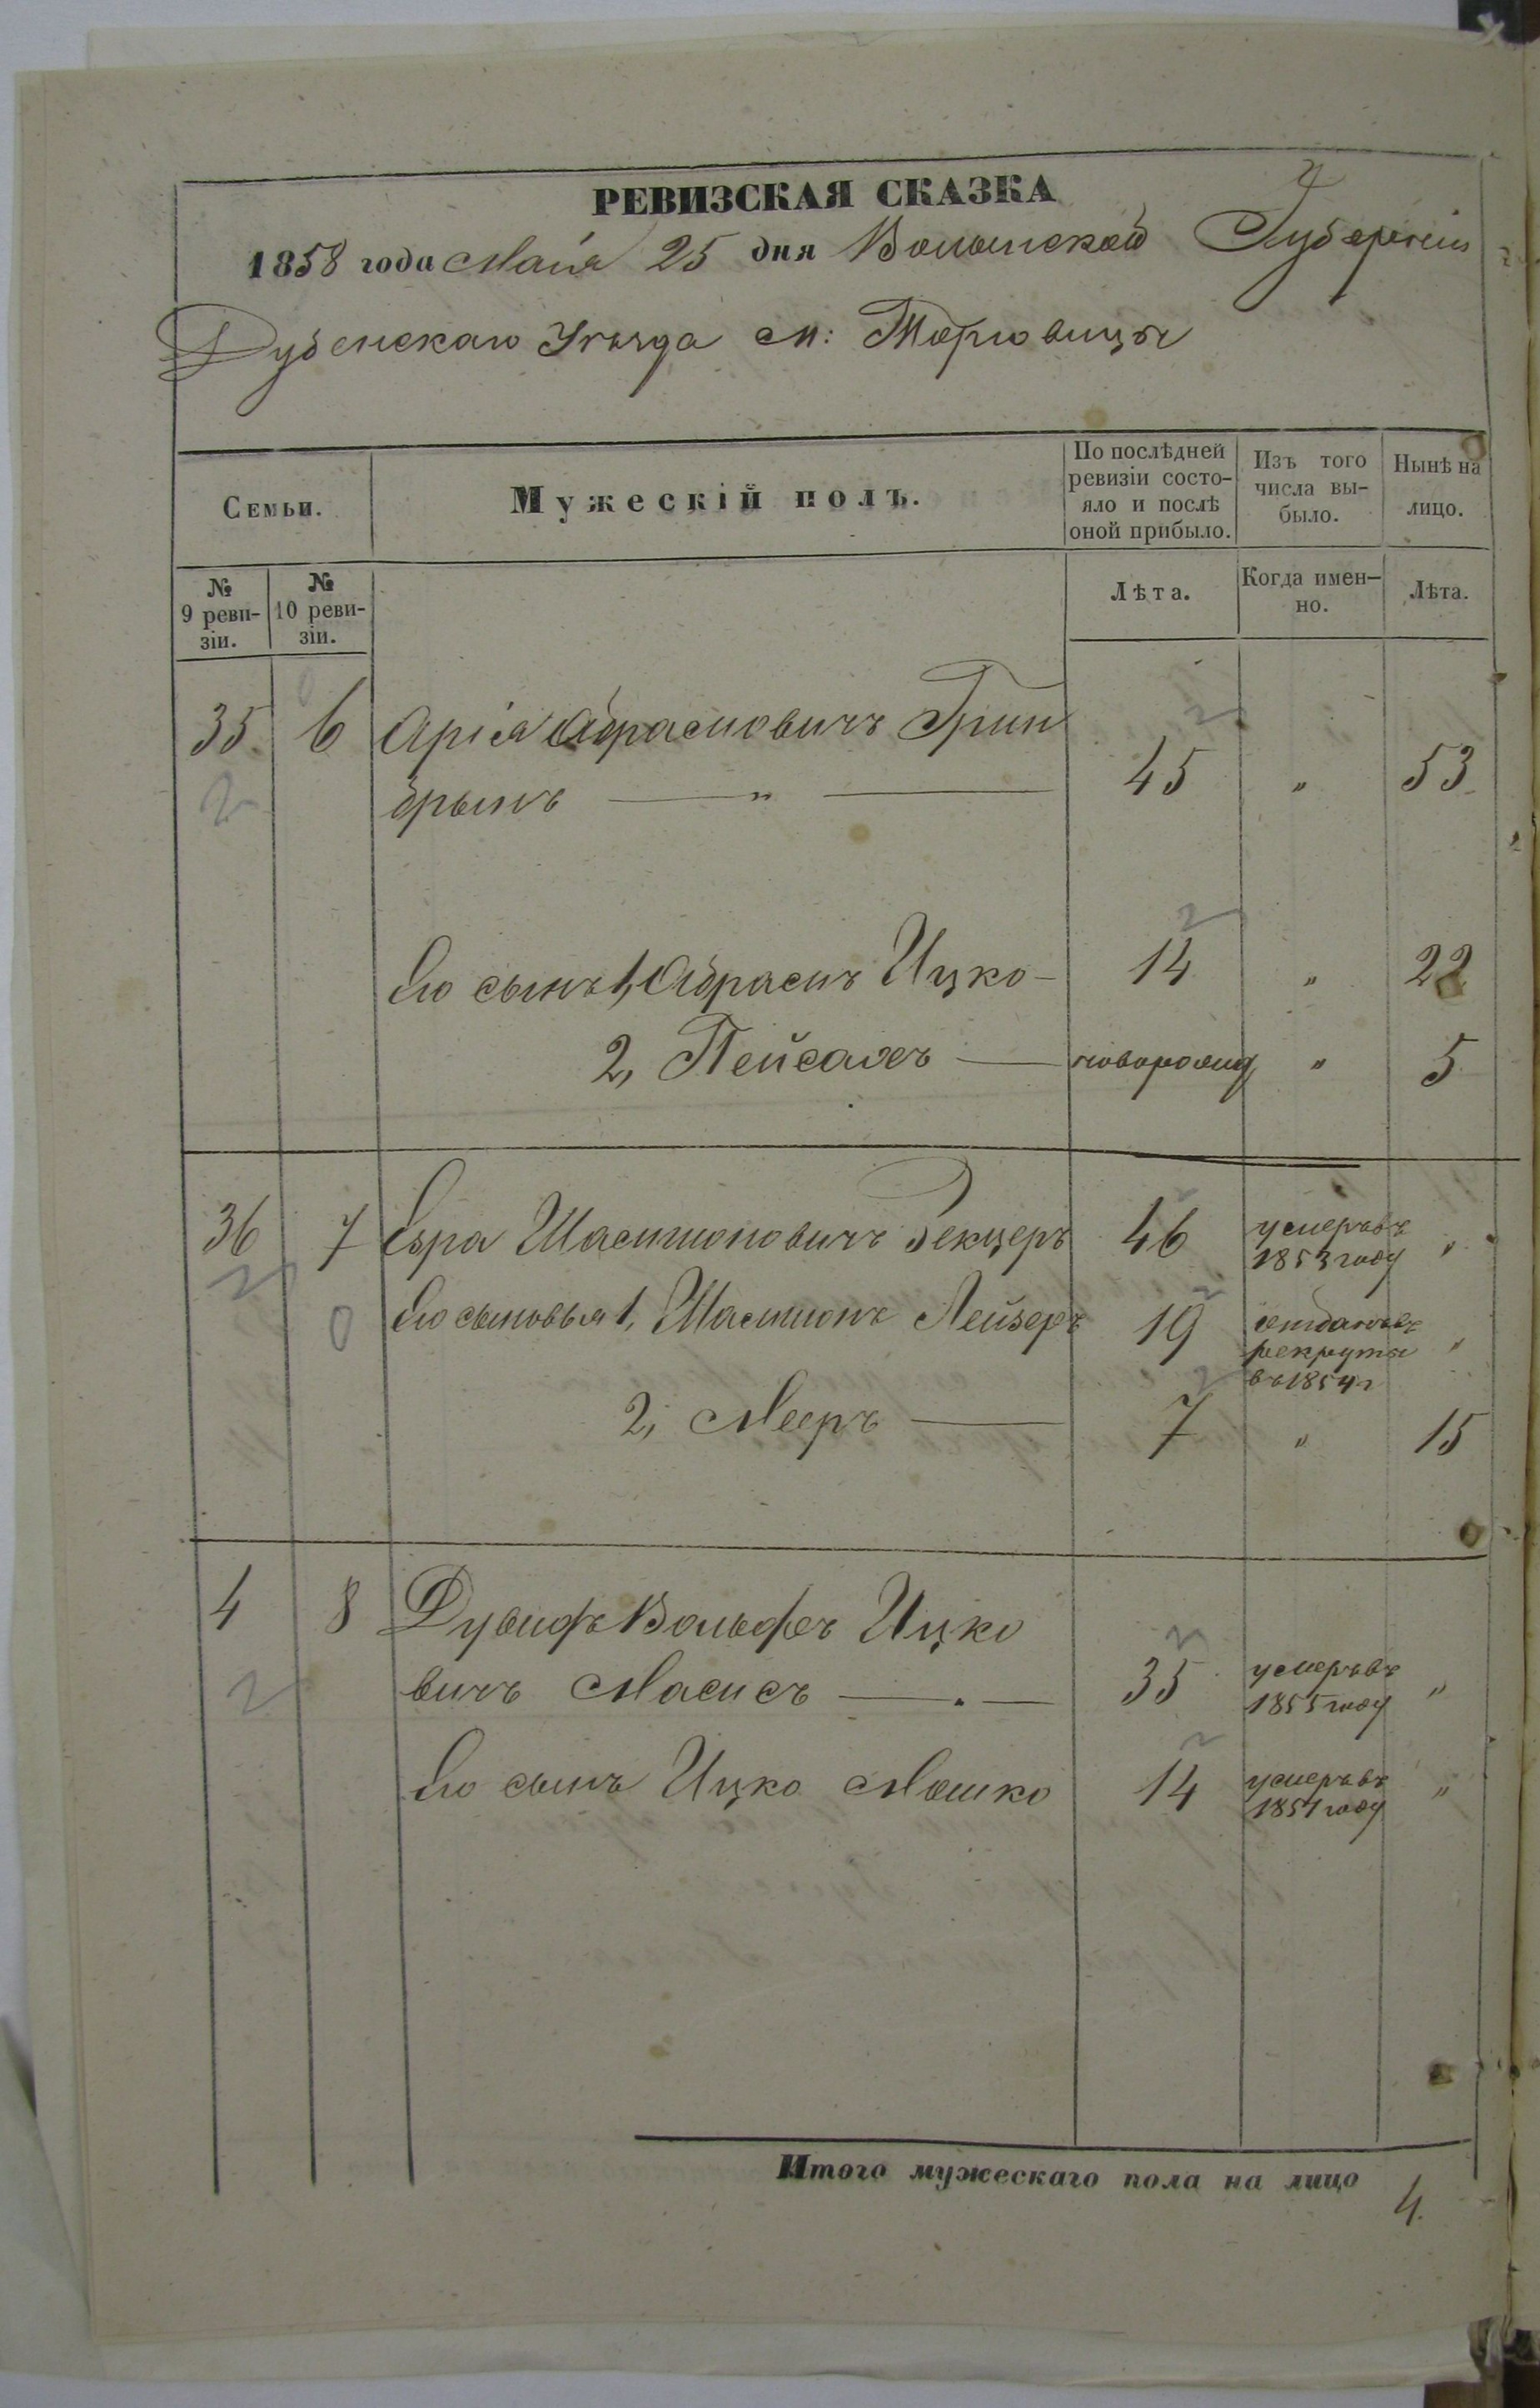 РЕВИЗСКАЯ СКАЗКА
1858 года Маія 25 дня Волынской Губерніи
Дубенскаго Уѣзда м: Торговицы
Семьи.
Мужескій полъ.
По послѣдней ревизіи состо-
яло и послѣ
оной прибыло.
Изъ того
числа вы-
было.
Нынѣ на
лицо.
№
9 реви-
зіи.
№
10 реви-
зіи.
Лѣта.
Когда имен-
но.
Лѣта.
35. 6 Арія Абрамовичъ Грин
брымъ — " — 45 " 53
Его сынъ 1, Абрамъ Ицко - 14 " 22
2, Пейсахъ — новорожд " 5
36 7 Сзра Шамшоновичъ Рекцеръ 46 умеръ въ
1853 году "
Его сыновья 1, Шамшонъ Лейзеръ 19 отданъ въ
рекруты "
въ 1854 г
2, Мееръ — 7 " 15
4 8 Дувидъ Вольфъ Ицко
вичъ Масисъ — . — 35 умеръ въ
1855 году "
Его сынъ Ицко Мошко 14 умеръ въ
1851 году "
Итого мужескаго пола на лицо 4.